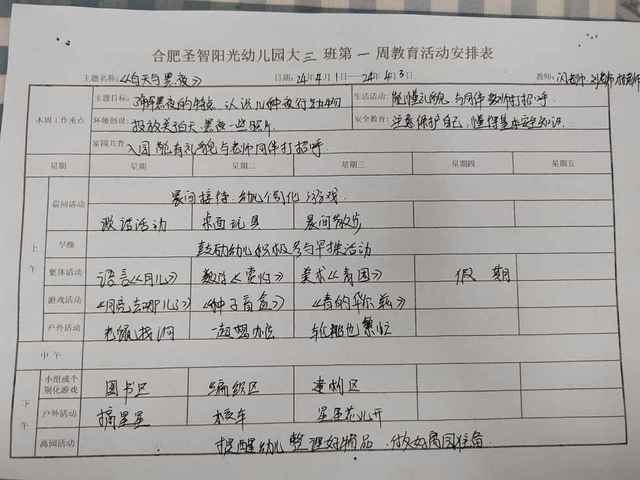 合肥圣智阳光幼儿园大三班第一周教育活动安排表
主题名称:《白天与黑夜》 日期:24年4月1—24年4月3日 教师:
本周工作重点 主题目标: 认识几种夜行动物 生活活动: 能懂礼貌 与同伴 老师打招呼.
环境创设: 投放关于白天 黑夜一些照片. 安全教育: 注意保护自己, 懂得基本安全知识.
家园共育 入园能有礼貌与老师同伴打招呼.
星期 星期一 星期二 星期三 星期四 星期五
上午 晨间活动 晨间接待 幼儿个别化游戏.
谈话活动 桌面玩具 晨间散步
早操 鼓励幼儿积极参与早操活动
集体活动 语言《月儿》 数活《 》 美术《 》 假期
游戏活动 《月亮去哪儿》 《种子盲盒》 《春的华尔兹》
户外活动 一起想办法
中午
下午 小组或个别化游戏 图书区 编织区 建构区
户外活动 摘星星 星星花儿开
离园活动 提醒幼儿整理好物品 做好离园准备.